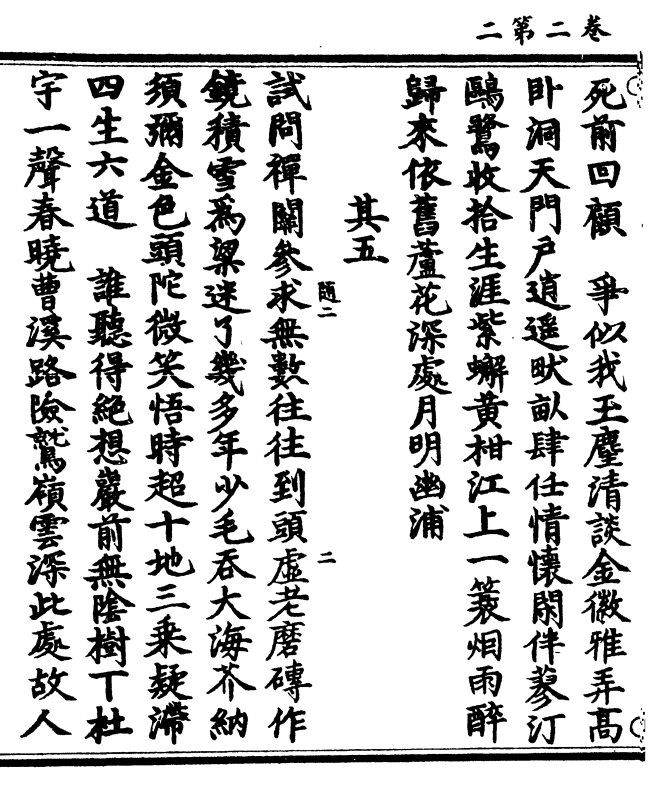 卷二第二
死前回顧　爭似我玉麈清談金徽雅弄高
卧洞天門戶逍遥畎畝肆任情懷閑伴蓼汀
鷗鷺收拾生涯紫蠏黄柑江上一簑烟雨醉
歸來依舊蘆花深處月明幽浦
其五
試問禪關參求無數往往到頭虛老磨磚作
鏡積雪爲粱迷了幾多年少毛吞大海芥納
須彌金色頭陀微笑悟時超十地三乗疑滯
四生六道　誰聽得絶想巖前無陰樹下杜
宇一聲春曉曹溪路險鷲嶺雲深此處故人
随二
二